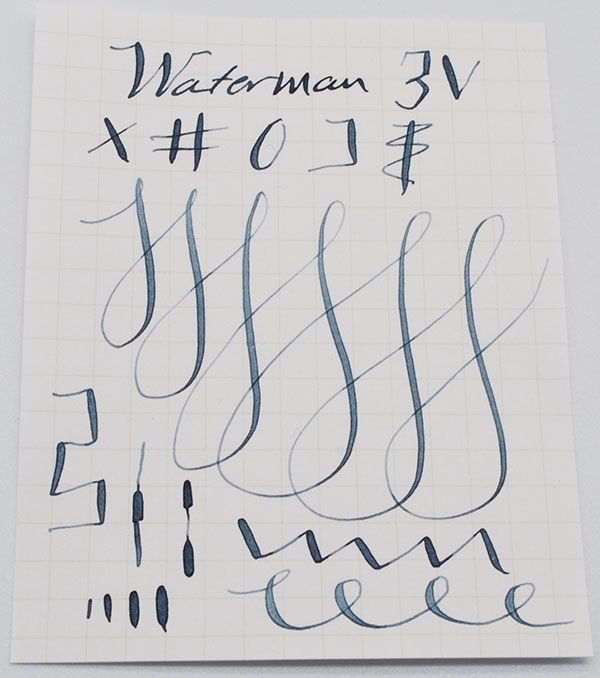 Waterman 3V
X # O ] $